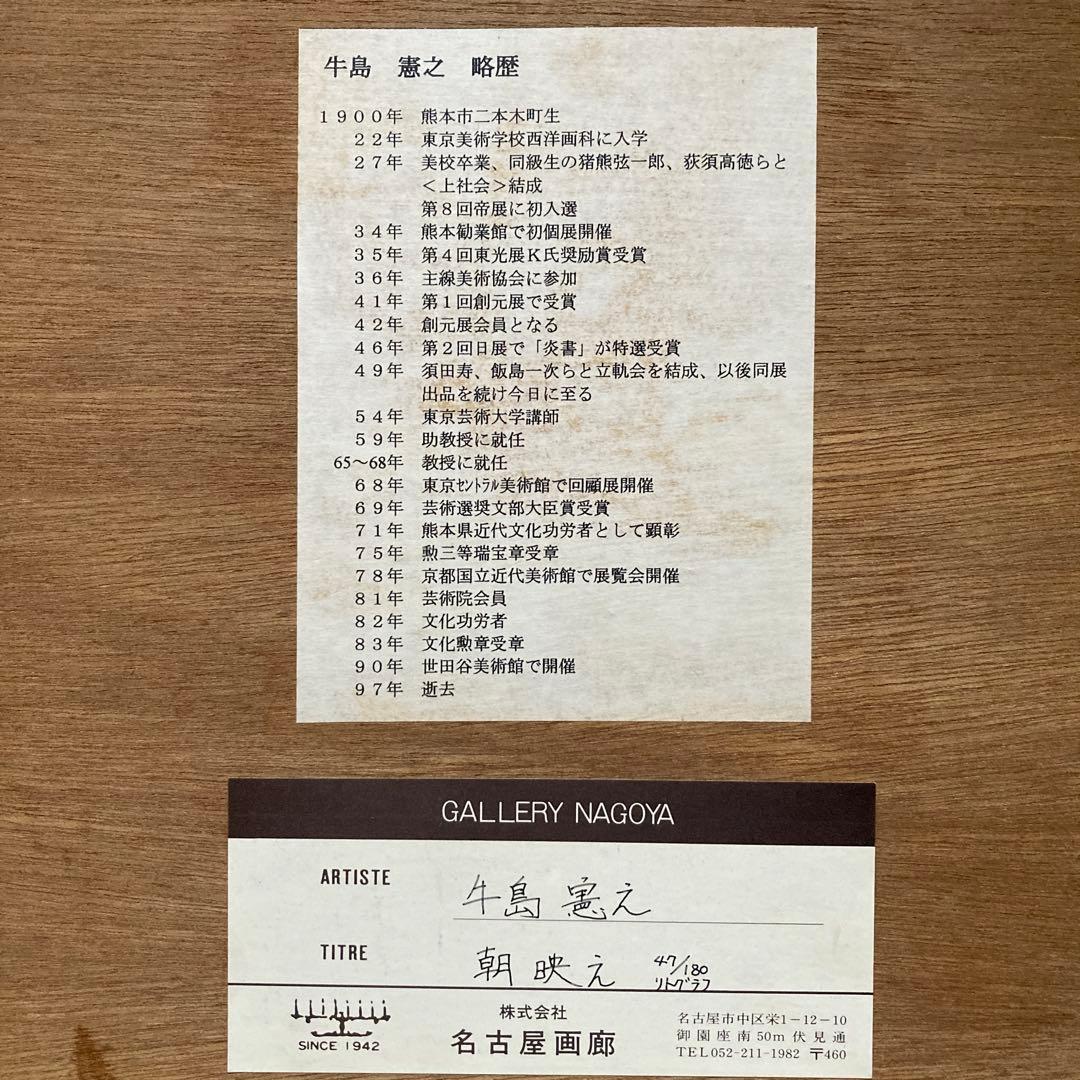 牛島　憲之　略歴
１９００年　熊本市二本木町生
２２年　東京美術学校西洋画科に入学
２７年　美校卒業、同級生の猪熊弦一郎、荻須高徳らと
＜上社会＞結成
第８回帝展に初入選
３４年　熊本勧業館で初個展開催
３５年　第４回東光展Ｋ氏奨励賞受賞
３６年　主線美術協会に参加
４１年　第１回創元展で受賞
４２年　創元展会員となる
４６年　第２回日展で「炎書」が特選受賞
４９年　須田寿、飯島一次らと立軌会を結成、以後同展
出品を続け今日に至る
５４年　東京芸術大学講師
５９年　助教授に就任
65〜68年　教授に就任
６８年　東京ｾﾝﾄﾗﾙ美術館で回顧展開催
６９年　芸術選奨文部大臣賞受賞
７１年　熊本県近代文化功労者として顕彰
７５年　勲三等瑞宝章受章
７８年　京都国立近代美術館で展覧会開催
８１年　芸術院会員
８２年　文化功労者
８３年　文化勲章受章
９０年　世田谷美術館で開催
９７年　逝去
GALLERY NAGOYA
ARTISTE 牛島憲之
TITRE 朝映え 47/180
リトグラフ
SINCE 1942
株式会社
名古屋画廊
名古屋市中区栄1－12－10
御園座南50m伏見通
TEL052-211-1982 〒460